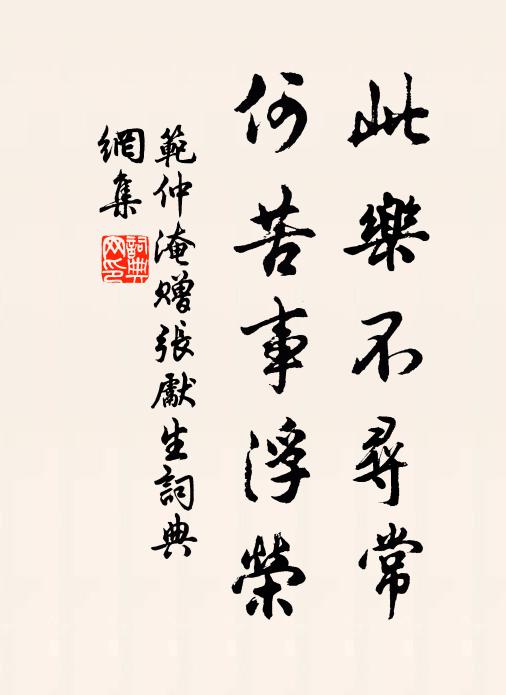 此樂不尋常
何苦事浮榮
範仲淹贈張獻生詞典
網集
詞典
网印